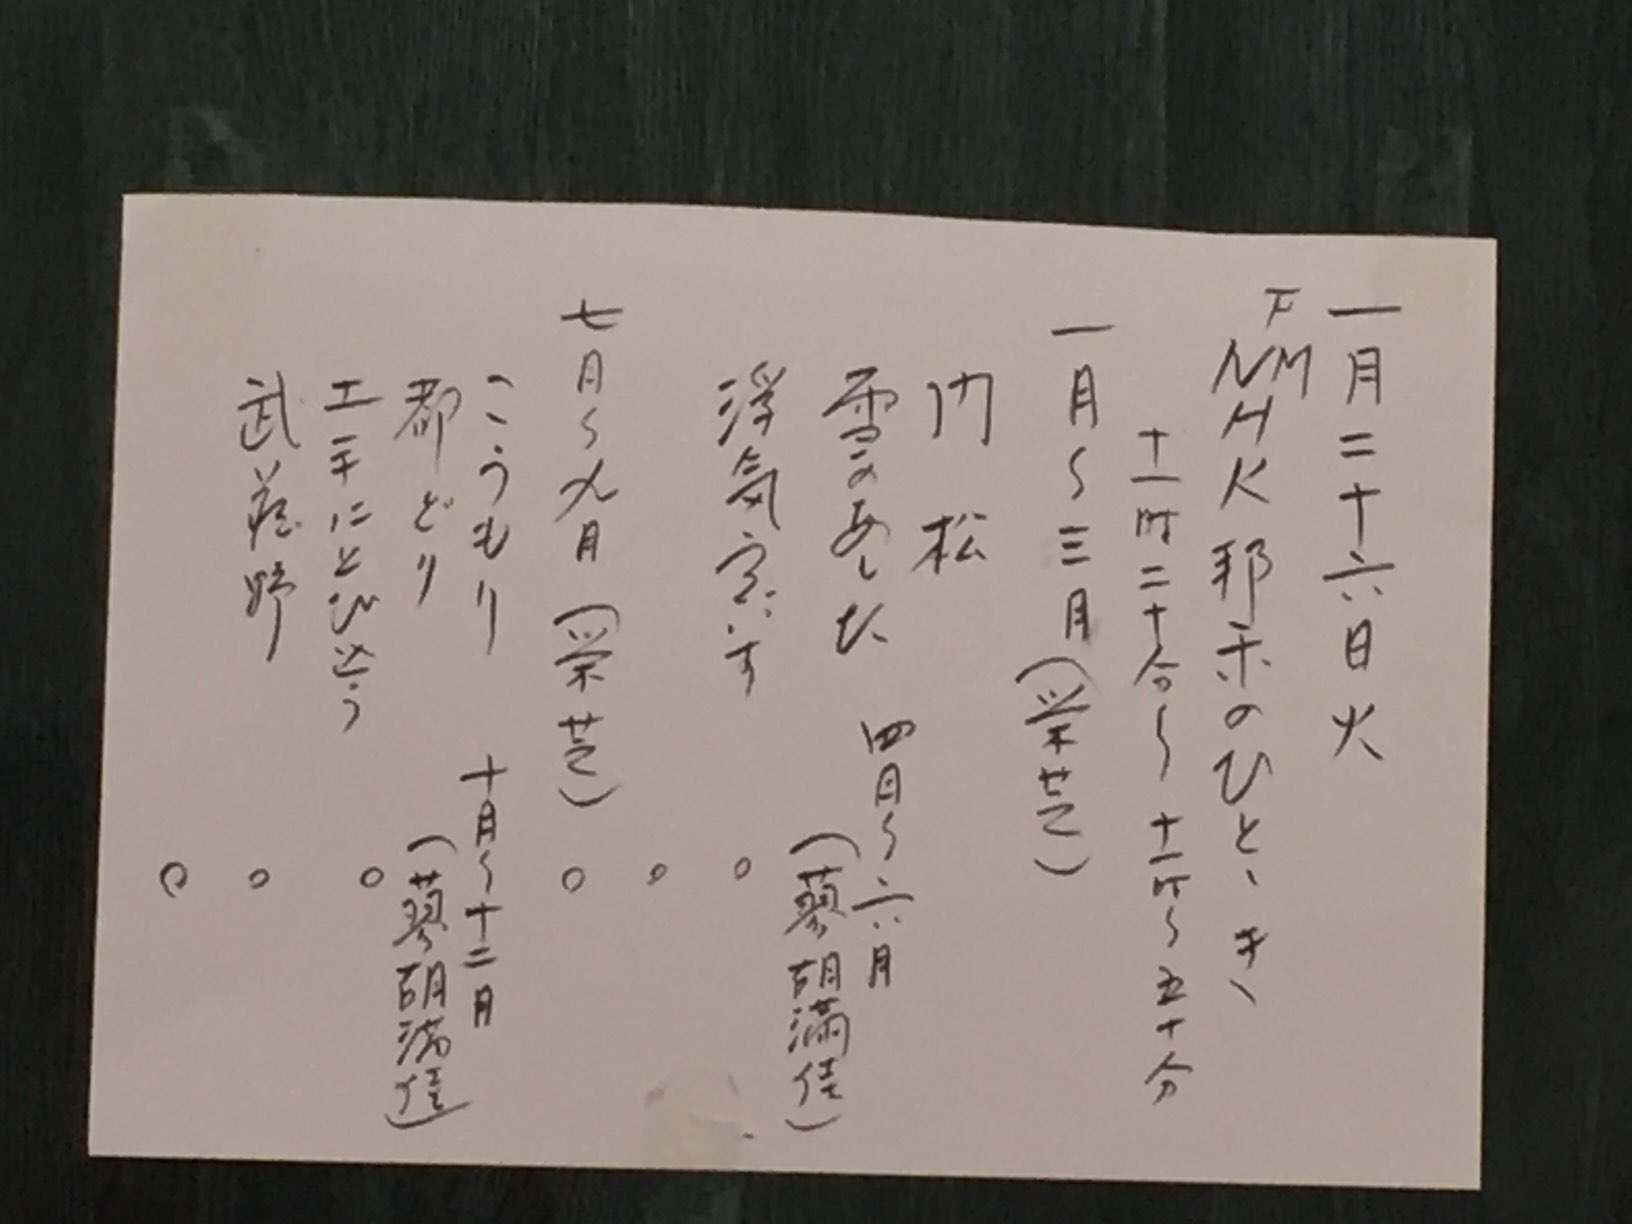 一月二十六日火
FM
NHK邦楽のひととき
十一時二十分〜十一時〜五十分
一月〜三月(栄芝)
門松
雪のあした
浮気うぐいす
四月〜六月
(蓼胡満佳)
○
○
○
七月〜九月(栄芝)
こうもり
都どり
土手にとび込う
武蔵野
十月〜十二月
(蓼胡満佳)
○
○
○